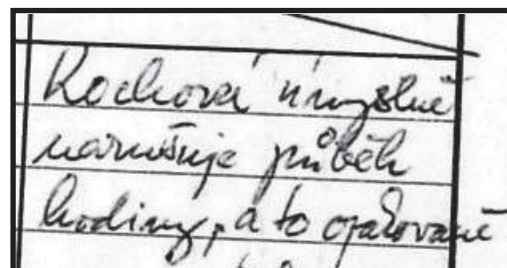 Kochová úmyslně
narušuje průběh
hodiny, a to opakovaně